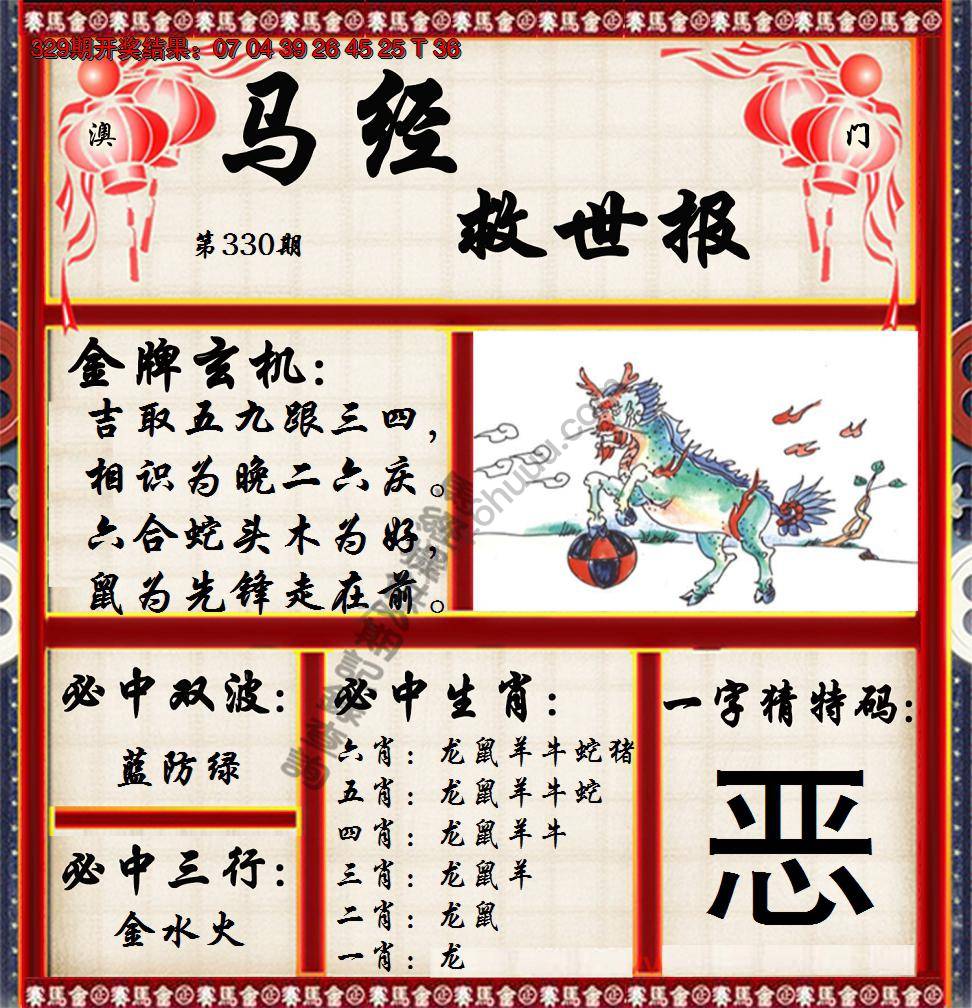 329期开奖结果：07 04 39 26 45 25 T 36
澳
门
马经
救世报
第330期
金牌玄机：
吉取五九跟三四，
相识为晚二六庆。
六合蛇头木为好，
鼠为先锋走在前。
必中双波：
蓝防绿
必中三行：
金水火
必中生肖：
六肖：龙鼠羊牛蛇猪
五肖：龙鼠羊牛蛇
四肖：龙鼠羊牛
三肖：龙鼠羊
二肖：龙鼠
一肖：龙
一字猜特码：
恶